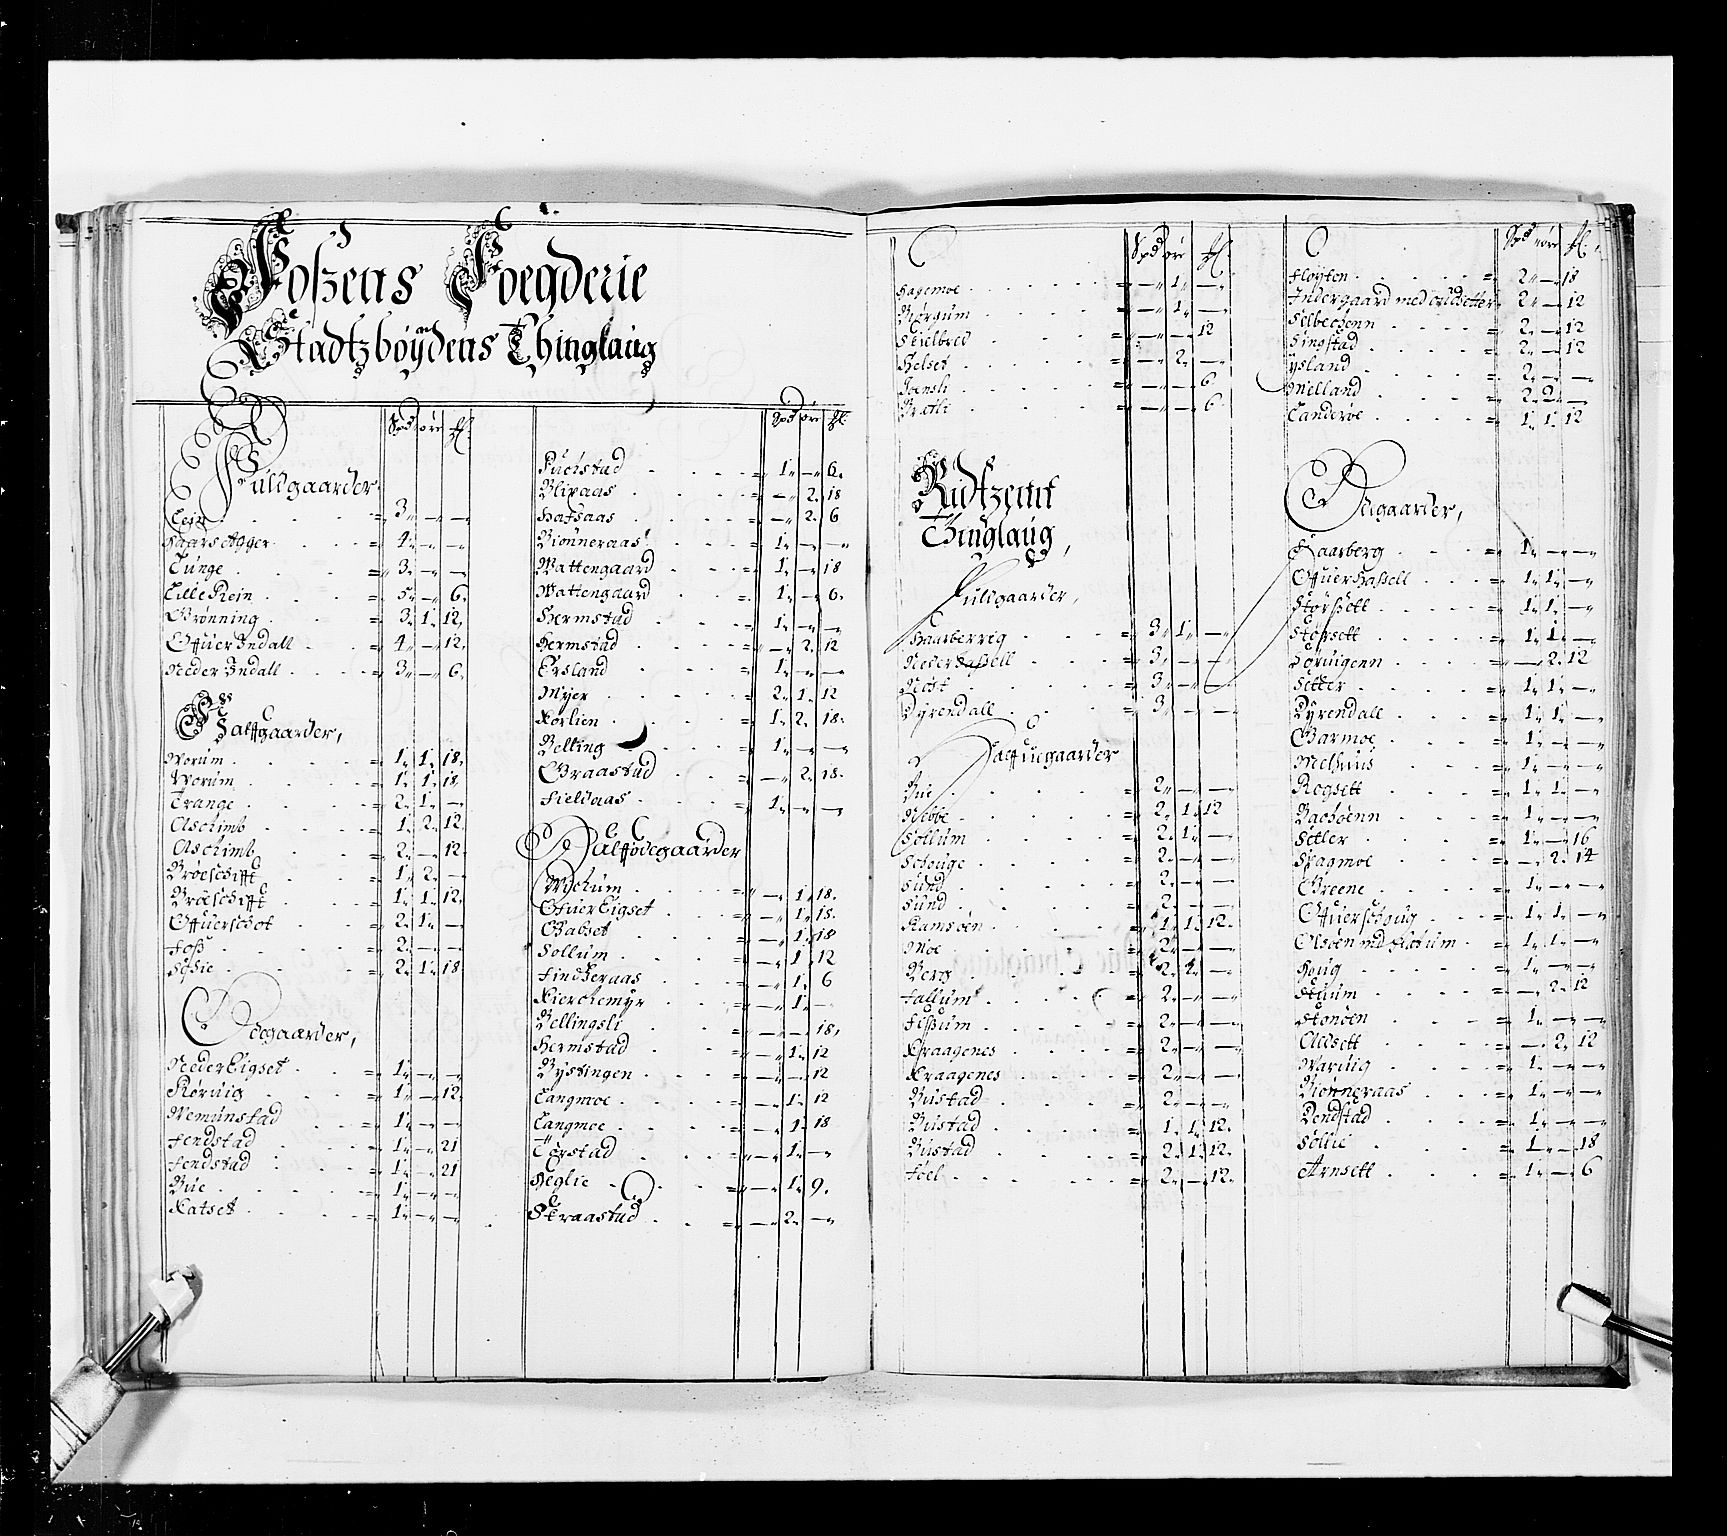 Foßens Foegderie
Stadtzböÿdens Thinglaug
Spd øre
Fullgaarder
Rein = 3 „ — „ —
Haarsagger = 4 „ — „ —
Tunge = 3 „ — „ —
Lille Rein = 5 „ — „ 6
Grønning = 3 „ 1 „ 12
Offuer Indall = 4 „ — „ 12
Neder Indall = 3 „ — „ 6
Halffgaarder,
Worum = 1 „ 1 „ 18
Worum = 1 „ 1 „ 18
Trange = 2 „ 1 „ —
Aschimb = 1 „ 2 „ 12
Aschimb = 2 „ — „ 12
Brøeschifft = 1 „ 2 „ —
Brøeschifft = 1 „ 1 „ 12
Offuerschot = 2 „ 1 „ —
Foß = 2 „ — „ —
= 2 „ 1 „ 18
Ødegaarder,
Neder Eigset = 1 „ — „ —
Røruig = 1 „ — „ 12
Wemunstad = 1 „ — „ —
Fendstad = 1 „ — „ 21
Fendstad = 1 „ — „ 21
Bue = 1 „ — „ —
Ratset = 1 „ — „ —
Spd øre
= 1 „ — „ 6
Blixaas = — „ 2 „ 18
Hafsaas = — „ 2 „ 6
Biønneraas = 1 „ — „ —
Wattengaard = 1 „ — „ 18
Wattengaard = 1 „ — „ 6
Hermstad = 1 „ — „ —
Hermstad = — „ 2 „ 12
Ersland = 1 „ — „ —
Myer = 2 „ 1 „ 12
Korlien = 1 „ 2 „ 18
Belting = 1 „ — „ —
Graastad = — „ 2 „ 18
Fieldaas = 1 „ — „ —
Halffødegaarder
= — „ 1 „ 18
Ofuer Eigset = — „ 1 „ 18
Gabset = — „ 1 „ 18
Sollum = — „ 1 „ 12
Findkeraas = — „ 1 „ 6
Kierckemyr = — „ 1 „ —
Bellingsli = — „ — „ 18
Hermstad = — „ 1 „ 12
Bystingen = — „ — „ 12
Langmoe = — „ 1 „ 12
Langmoe = — „ 1 „ 18
Torstad = — „ 1 „ —
Heglie = — „ 1 „ 9
Skraastad = — „ 2 „ —
Spd øre
Hagemoe = — „ 1 „ —
Børgum = — „ 1 „ —
Skielbred = — „ — „ 12
Helset = — „ 2 „ —
Joensli = — „ — „ 6
Bratli = — „ — „ 6
Ridtzenn
Tinglaug,
Fullgaarder,
Haarberrig = 3 „ 1 „ —
Neder Haßell = 3 „ — „ —
Nøst = 3 „ — „ —
Dyrendall = 3 „ — „ —
Halffuegaarder
Bue = 2 „ — „ —
Nebbe = 2 „ 1 „ 12
Sollum = 2 „ 1 „ —
Schouge = 2 „ — „ —
Sund = 2 „ — „ —
Sund = 2 „ — „ —
Ramsøen = 1 „ 1 „ 12
Moe = 2 „ — „ —
Berg = 2 „ 2 „ —
Fallum = 2 „ — „ —
Fißum = 2 „ — „ —
Kraagenes = 2 „ — „ —
Kraagenes = 2 „ — „ —
Bustad = 2 „ — „ —
Bustad = 1 „ 1 „ 12
Bustad = 2 „ 1 „ 12
Foel = 2 „ — „ 12
Spd øre
Fløyten = 2 „ — „ 18
Indergaard med = 2 „ — „ 12
Selbechenn = 2 „ — „ 12
Singstad = 2 „ — „ 12
Ysland = 2 „ — „ —
Melland = 2 „ 2 „ —
Landerøe = 1 „ 1 „ 12
Ødegaarder,
Haarberg = 1 „ — „ —
Offuer Haßell = 1 „ 1 „ —
Størßett = 1 „ 1 „ —
Størsett = 1 „ 1 „ —
Søruigenn = — „ 2 „ 12
Setter = 1 „ 1 „ —
Dyrendall = 1 „ 1 „ —
Garmoe = 1 „ — „ —
Melhuus = 1 „ — „ —
Rogsett = 1 „ 1 „ —
Bachøenn = 1 „ — „ —
Setler = 1 „ — „ 16
Spagmoe = — „ 2 „ 14
Greene = 1 „ — „ —
Offuerschoug = 1 „ 1 „ —
Olsøen md = 1 „ 1 „ —
Houg = 1 „ — „ —
= — „ 2 „ 12
Stonøen = 1 „ — „ —
Aldsett = — „ 2 „ 12
Waruig = 1 „ — „ —
Biønneraas = 1 „ — „ —
Dendstad = 1 „ — „ —
Sollie = 1 „ — „ 18
Arnsett = 1 „ — „ 6